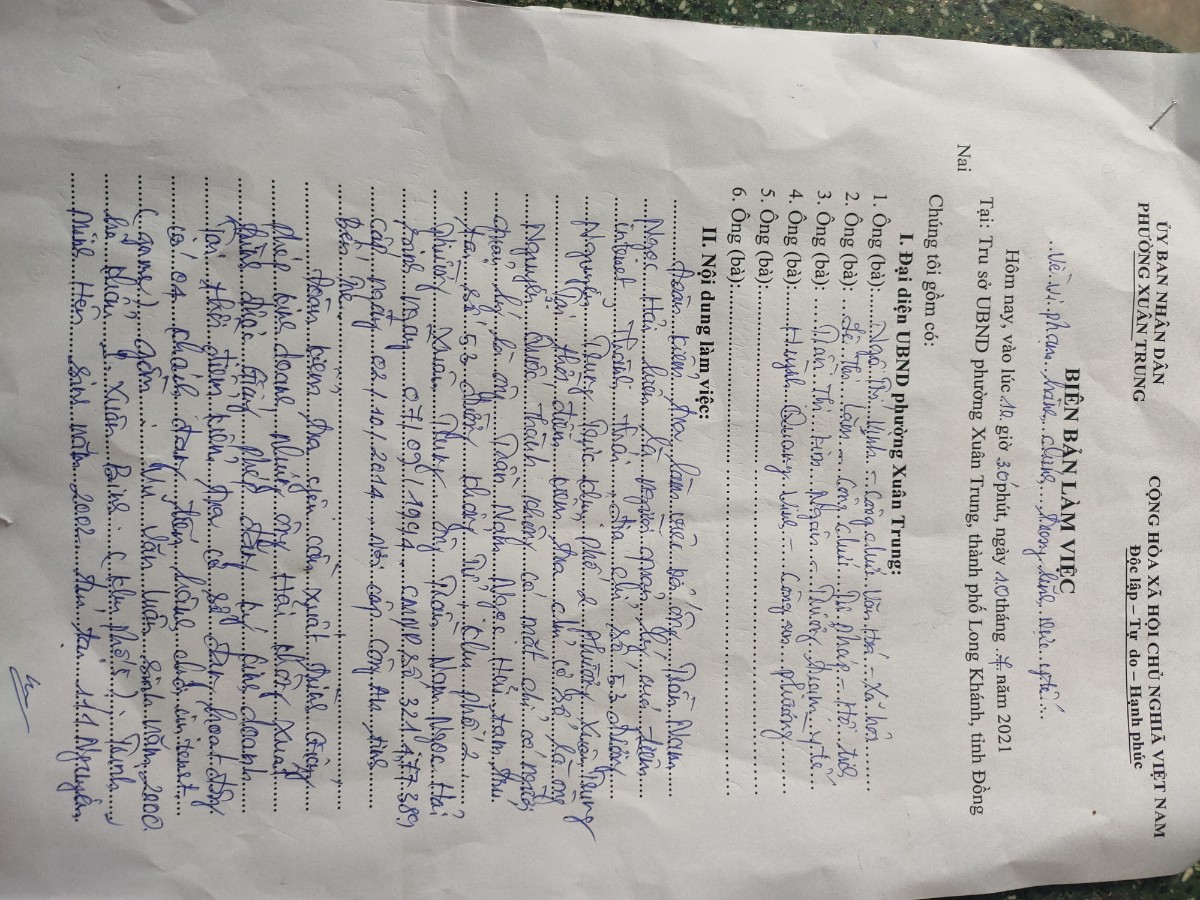 ỦY BAN NHÂN DÂN
PHƯỜNG XUÂN TRUNG
CỘNG HÒA XÃ HỘI CHỦ NGHĨA VIỆT NAM
Độc lập – Tự do – Hạnh phúc
BIÊN BẢN LÀM VIỆC
Về vi phạm hành chính trong lĩnh vực y tế
Hôm nay, vào lúc 10 giờ 30 phút, ngày 10 tháng năm 2021
Tại: Trụ sở UBND phường Xuân Trung, thành phố Long Khánh, tỉnh Đồng
Nai
Chúng tôi gồm có:
I. Đại diện UBND phường Xuân Trung:
1. Ông (bà) Ngô Thị – Công chức Văn hoá – Xã hội
2. Ông (bà) Lê Thị – Công chức Tư pháp – Hộ tịch
3. Ông (bà) Trần Thị Kim Ngân – Trưởng trạm y tế
4. Ông (bà) Huỳnh Quang – Công an phường
5. Ông (bà)
6. Ông (bà)
II. Nội dung làm việc:
Đoàn kiểm tra làm việc với ông Trần Nam
Ngọc Hải hiện là người quản lý của tiệm
internet Thành Thái, địa chỉ số 53 đường
Nguyễn Trung Trực khu phố 2 phường Xuân Trung
Tại thời điểm kiểm tra chủ cơ sở là ông
Nguyễn Quốc Thành không có mặt chỉ có người
quản lý là ông Trần Nam Ngọc Hải, tạm trú
tại số 53 đường khu phố 2
phường Xuân Trung. Ông Trần Nam Ngọc Hải
sinh ngày 07/09/1994 CMND số 321477389
cấp ngày 02/10/2014 nơi cấp Công an tỉnh
Bến Tre
Đoàn kiểm tra yêu cầu xuất trình Giấy
phép kinh doanh nhưng ông Hải không xuất
trình được Giấy phép đăng ký kinh doanh
Tại thời điểm kiểm tra cơ sở đang hoạt động
có 04 khách đang chơi internet
(game) gồm: Văn sinh năm 2000
Xuân Bình (khu phố ); Trịnh
Minh sinh năm 2002 111 Nguyễn